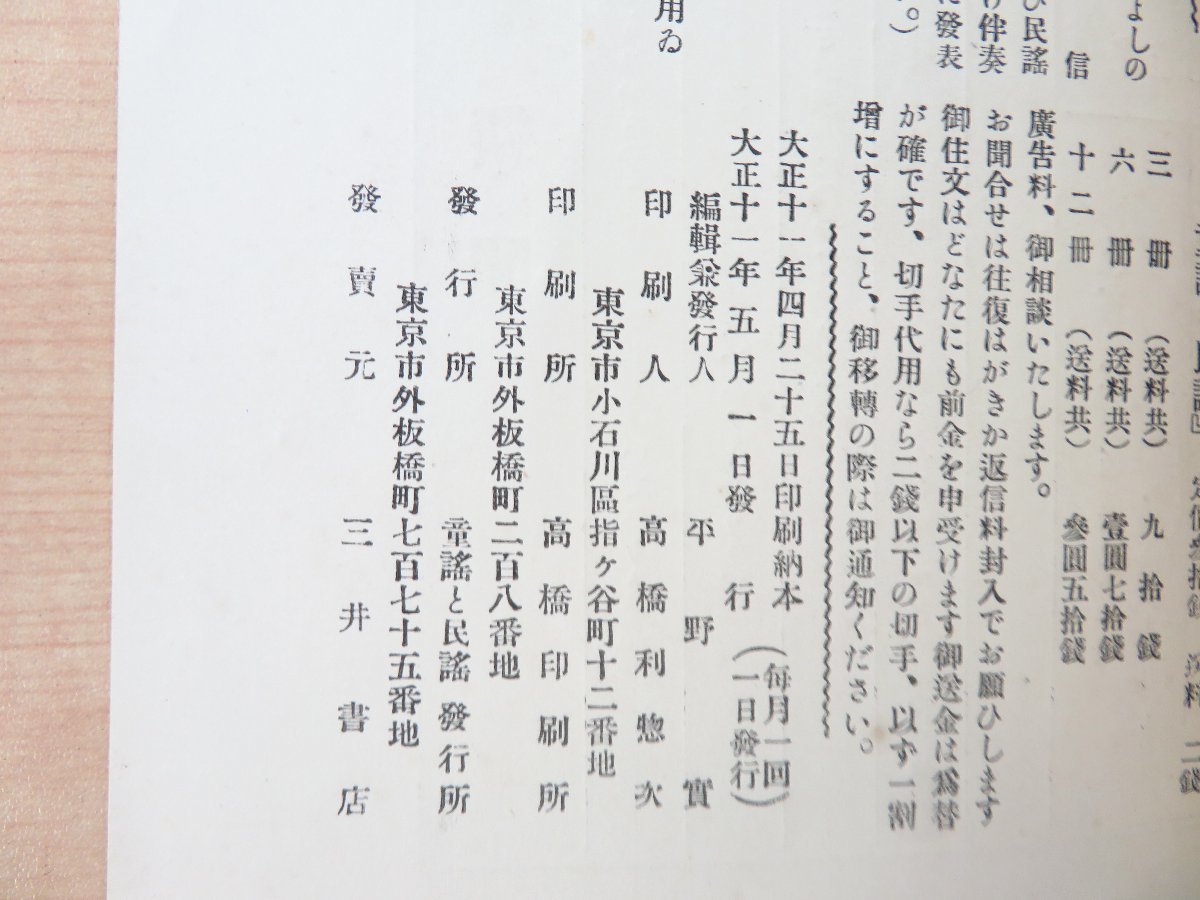 よしの
信
ひ民謠
け伴奏
に發表
。）
用ゐ
三冊（送料共）九拾錢
六冊（送料共）壹圓七拾錢
十二冊（送料共）參圓五拾錢
廣告料、御相談いたします。
お聞合せは往復はがきか返信料封入でお願ひします
御住文はどなたにも前金を申受けます御送金は爲替
が確です、切手代用なら二錢以下の切手、以ず一割
增にすること、御移轉の際は御通知ください。
大正十一年四月二十五日印刷納本
大正十一年五月一日發行
（每月一回
一日發行）
編輯兼發行人 平野實
東京市小石川區指ヶ谷町十二番地
印刷人 高橋利惣次
東京市外板橋町二百八番地
印刷所 高橋印刷所
東京市外板橋町七百七十五番地
發行所 童謠と民謠發行所
發賣元 三井書店